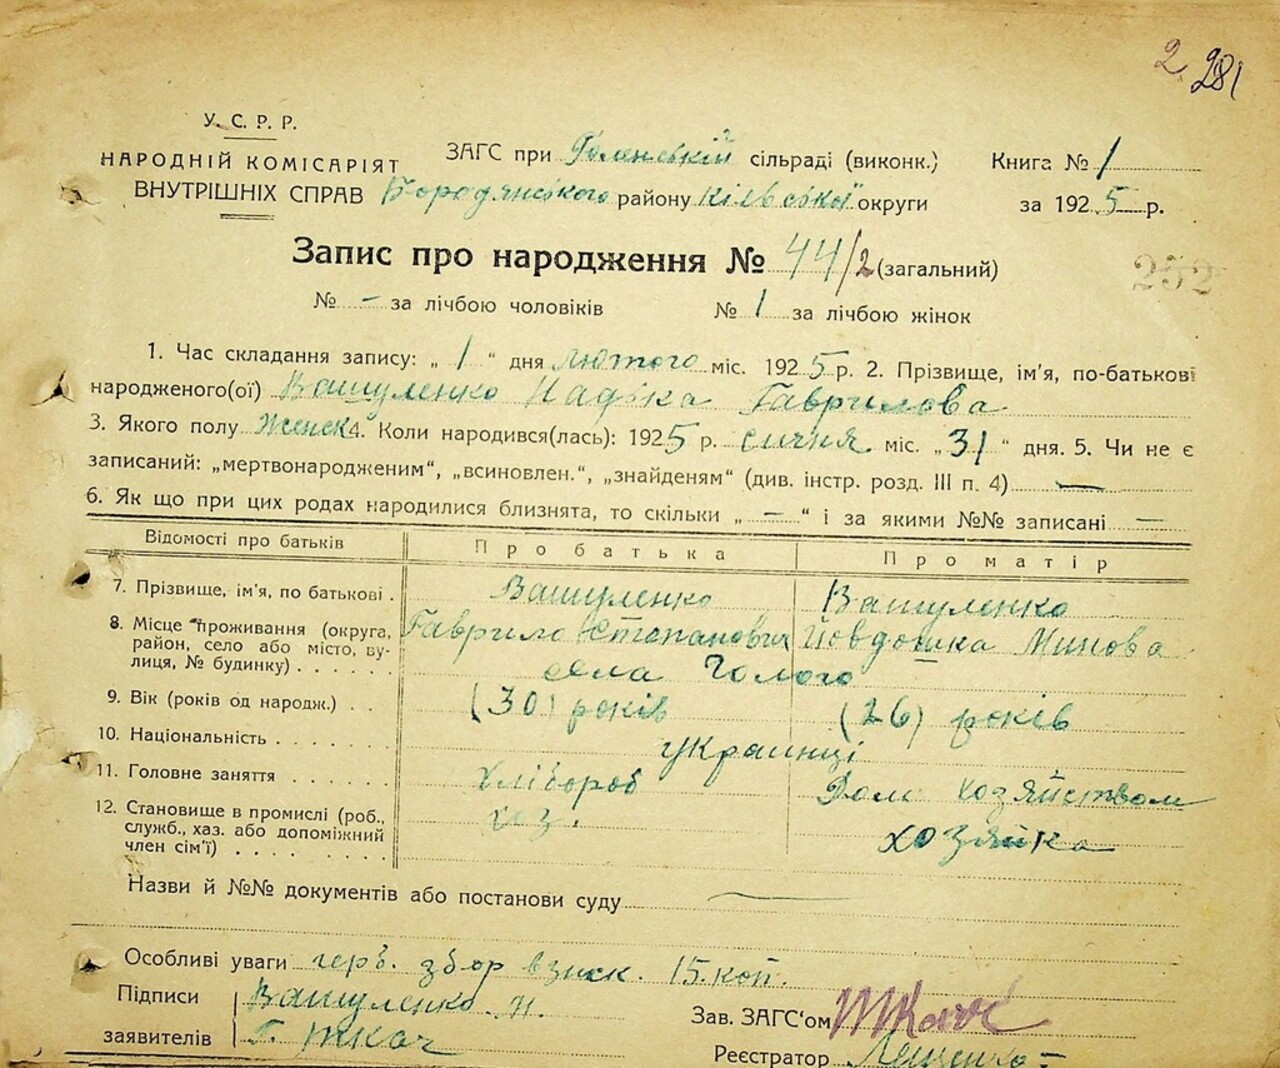 2. 281
У. С. Р. Р.
НАРОДНІЙ КОМІСАРІЯТ
ВНУТРІШНІХ СПРАВ
ЗАГС при сільраді (виконк.)
Бородянського району Київської округи
Книга № 1
за 1925 р.
Запис про народження № 44/2 (загальний)
252
№ – за лічбою чоловіків № 1 за лічбою жінок
1. Час складання запису: „ 1 “ дня лютого міс. 1925 р. 2. Прізвище, ім'я, по-батькові
народженого(ої) Вашуленко Надька Гаврилова
3. Якого полу Женск 4. Коли народився(лась): 1925 р. січня міс. „ 31 “ дня. 5. Чи не є
записаний: „мертвонародженим“, „всиновлен.“, „знайденям“ (див. інстр. розд. III п. 4) —
6. Як що при цих родах народилися близнята, то скільки „ — “ і за якими №№ записані —
Відомості про батьків Про батька Про матір
7. Прізвище, ім'я, по батькові . Вашуленко Вашуленко
8. Місце проживання (округа, район, село або місто, вулиця, № будинку) . . . . . Гаврило Степанович Йовдошка Минова
села
9. Вік (років од народж.) . . (30) років (26) років
10. Національність . . . . . . . українці
11. Головне заняття . . . . . . хлібороб Дом. хозяйством
12. Становище в промислі (роб., служб., хаз. або допоміжний член сім'ї) . . . . . . . хоз. хозяйка
Назви й №№ документів або постанови суду —
Особливі уваги герб. збор взиск. 15. коп.
Підписи Вашуленко
заявителів Г. Ткач
Зав. ЗАГС'ом Ткач
Реєстратор Лещенко